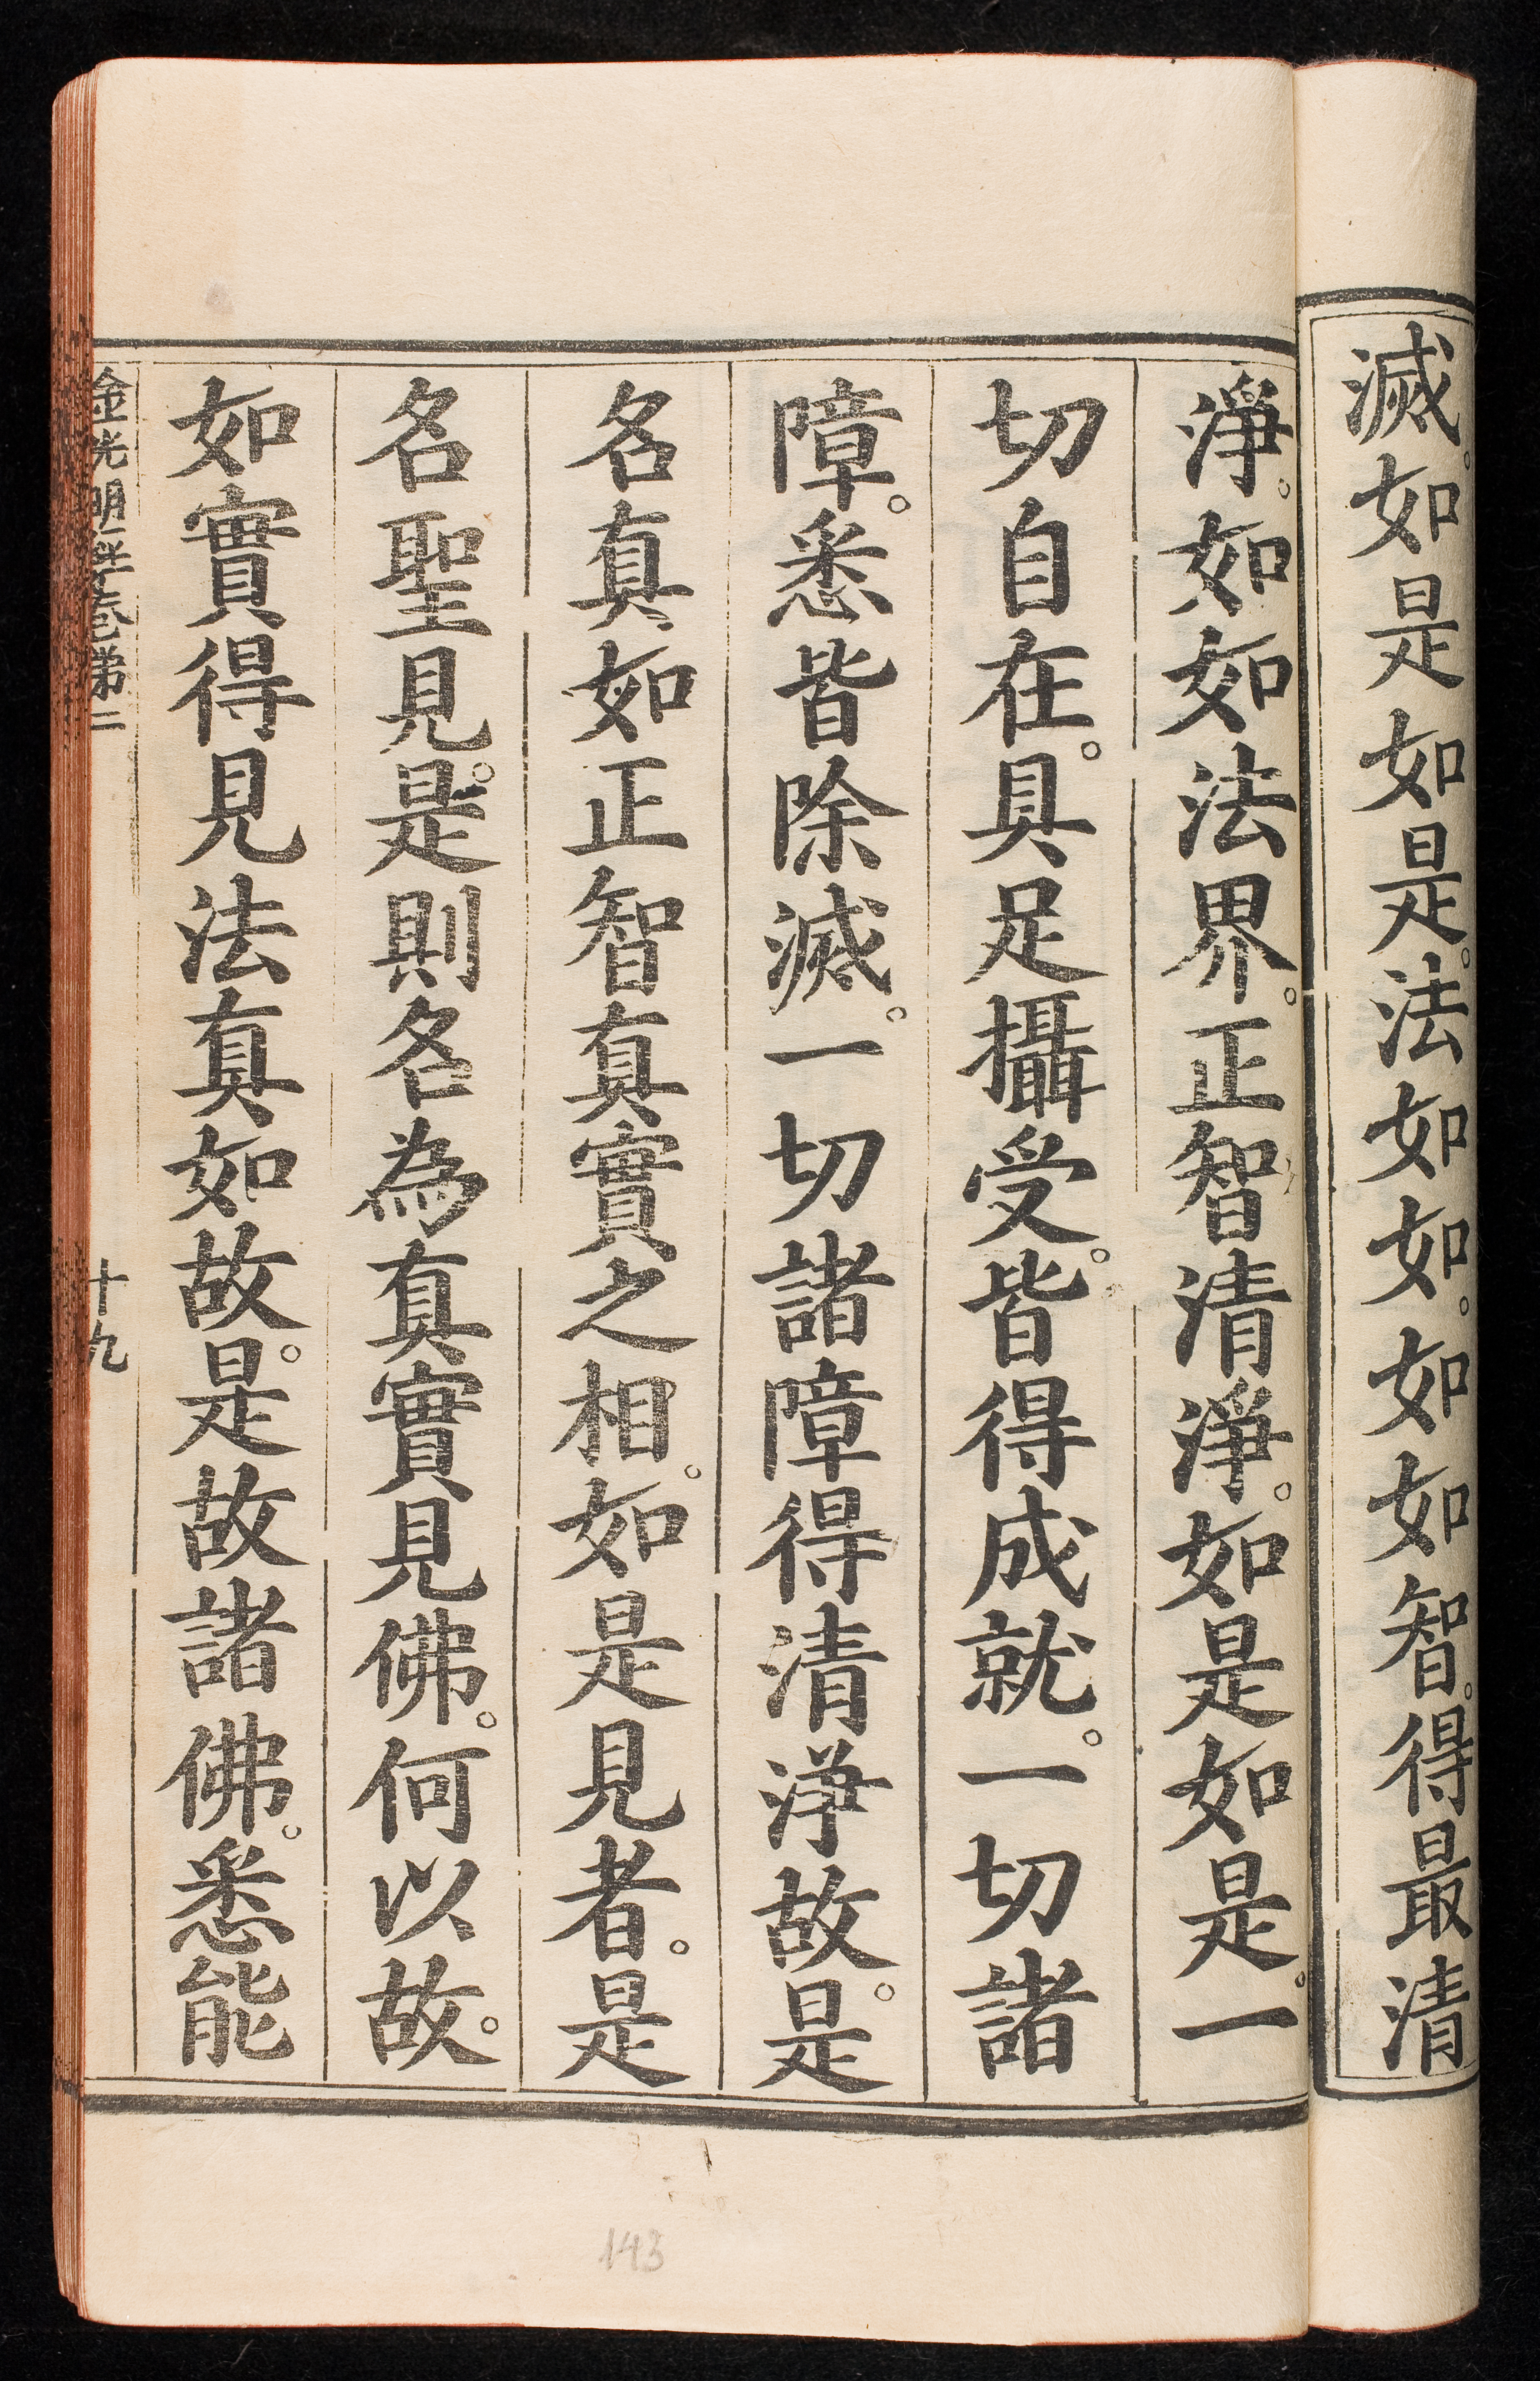 滅。如是如是。法如如。如如智。得最清
淨。如如法界。正智清淨。如是如是。一
切自在。具足攝受。皆得成就。一切諸
障。悉皆除滅。一切諸障得清淨故。是
名真如正智真實之相。如是見者。是
名聖見。是則名為真實見佛。何以故。
如實得見法真如故。是故諸佛。悉能
金光明經卷第二
十九
143